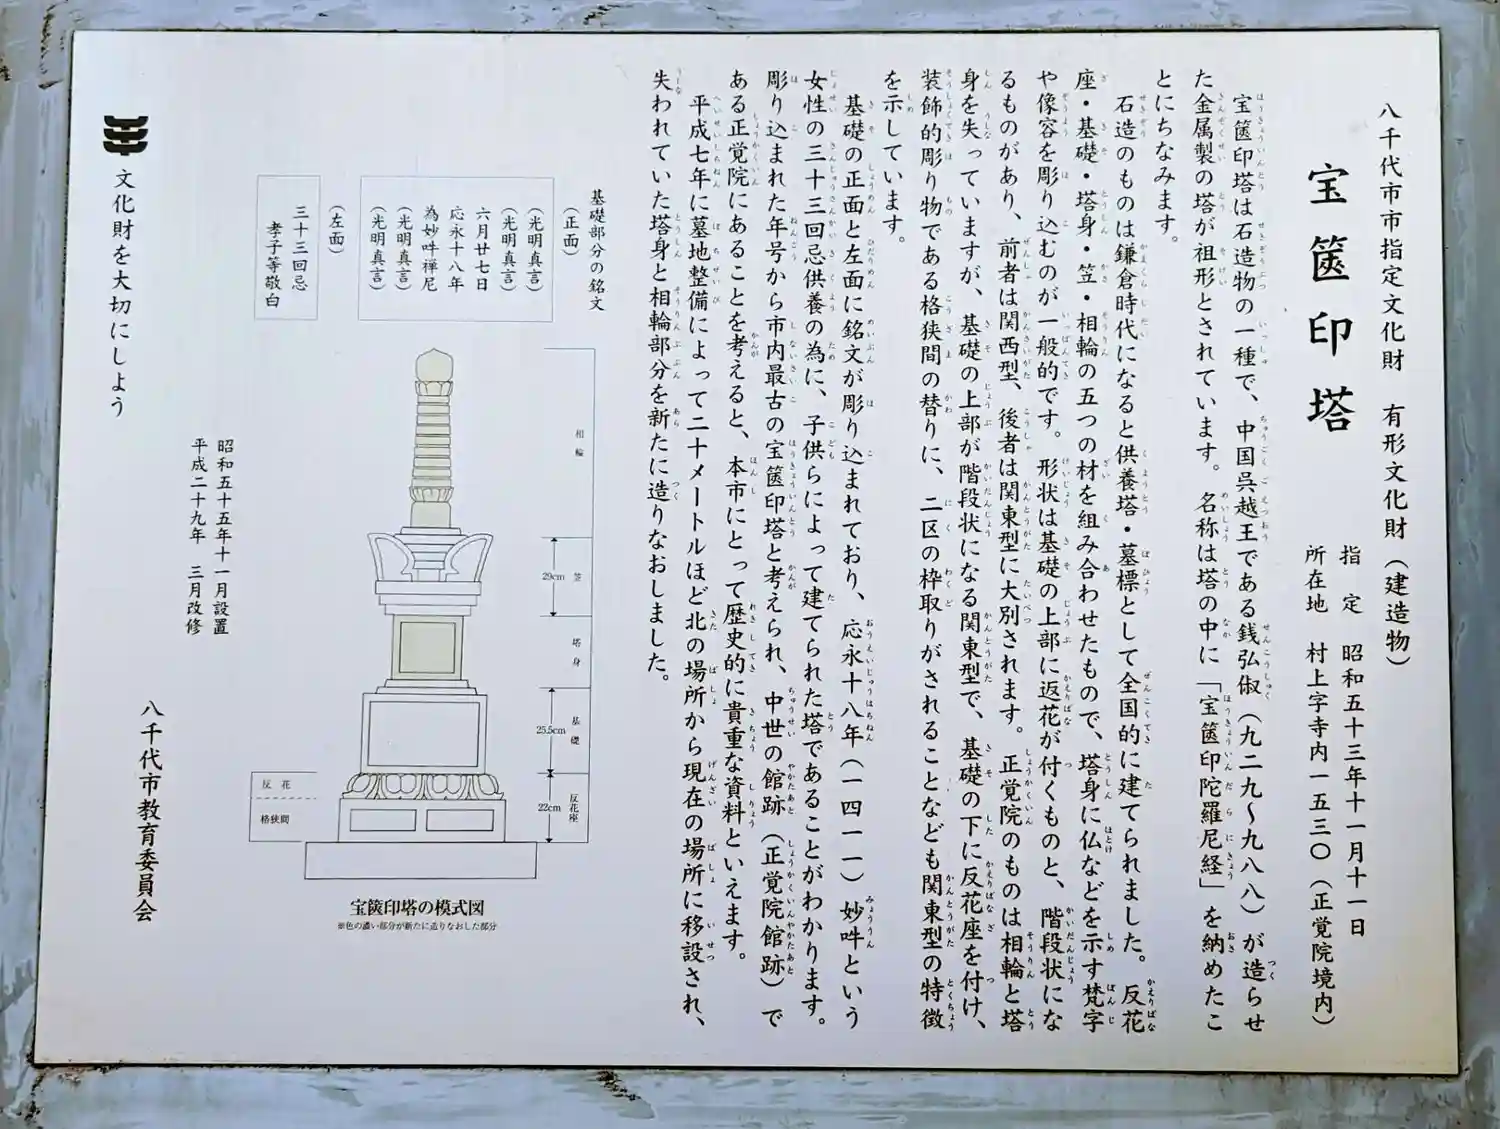 八千代市市指定文化財　有形文化財（建造物）
宝篋印塔
指　定　昭和五十三年十一月十一日
所在地　村上字寺内一五三〇（正覚院境内）
宝篋印塔は石造物の一種で、中国呉越王である銭弘俶（九二九〜九八八）が造らせ
た金属製の塔が祖形とされています。名称は塔の中に「宝篋印陀羅尼経」を納めたこ
とにちなみます。
石造のものは鎌倉時代になると供養塔・墓標として全国的に建てられました。反花
座・基礎・塔身・笠・相輪の五つの材を組み合わせたもので、塔身に仏などを示す梵字
や像容を彫り込むのが一般的です。形状は基礎の上部に返花が付くものと、階段状にな
るものがあり、前者は関西型、後者は関東型に大別されます。正覚院のものは相輪と塔
身を失っていますが、基礎の上部が階段状になる関東型で、基礎の下に反花座を付け、
装飾的彫り物である格狭間の替りに、二区の枠取りがされることなども関東型の特徴
を示しています。
基礎の正面と左面に銘文が彫り込まれており、応永十八年（一四一一）妙吽という
女性の三十三回忌供養の為に、子供らによって建てられた塔であることがわかります。
彫り込まれた年号から市内最古の宝篋印塔と考えられ、中世の館跡（正覚院館跡）で
ある正覚院にあることを考えると、本市にとって歴史的に貴重な資料といえます。
平成七年に墓地整備によって二十メートルほど北の場所から現在の場所に移設され、
失われていた塔身と相輪部分を新たに造りなおしました。
基礎部分の銘文
（正面）
（光明真言）
（光明真言）
六月廿七日
応永十八年
為妙吽禅尼
（光明真言）
（光明真言）
（左面）
三十三回忌
孝子等敬白
相輪
笠
29cm
塔身
基礎
25.5cm
反花座
22cm
反花
格狭間
宝篋印塔の模式図
※色の濃い部分が新たに造りなおした部分
昭和五十五年十一月設置
平成二十九年　三月改修
八千代市教育委員会
文化財を大切にしよう